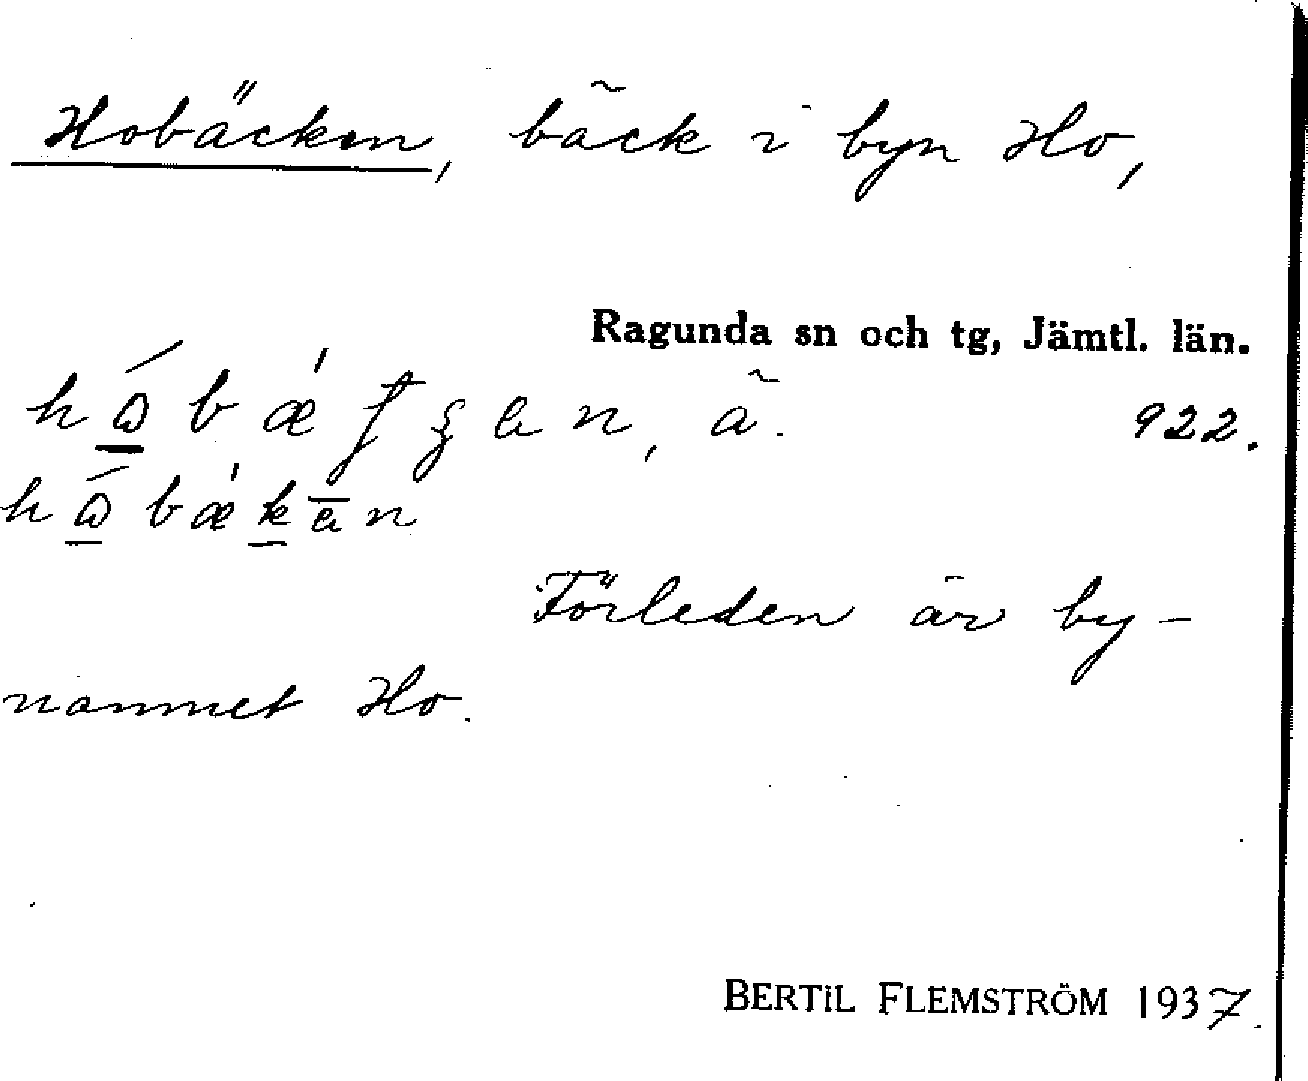 Hobäcken, bäck i byn Ho,
Ragunda sn och tg, Jämtl. län.
922.
Förleden är by-
namnet Ho.
BERTIL FLEMSTRÖM 1937.